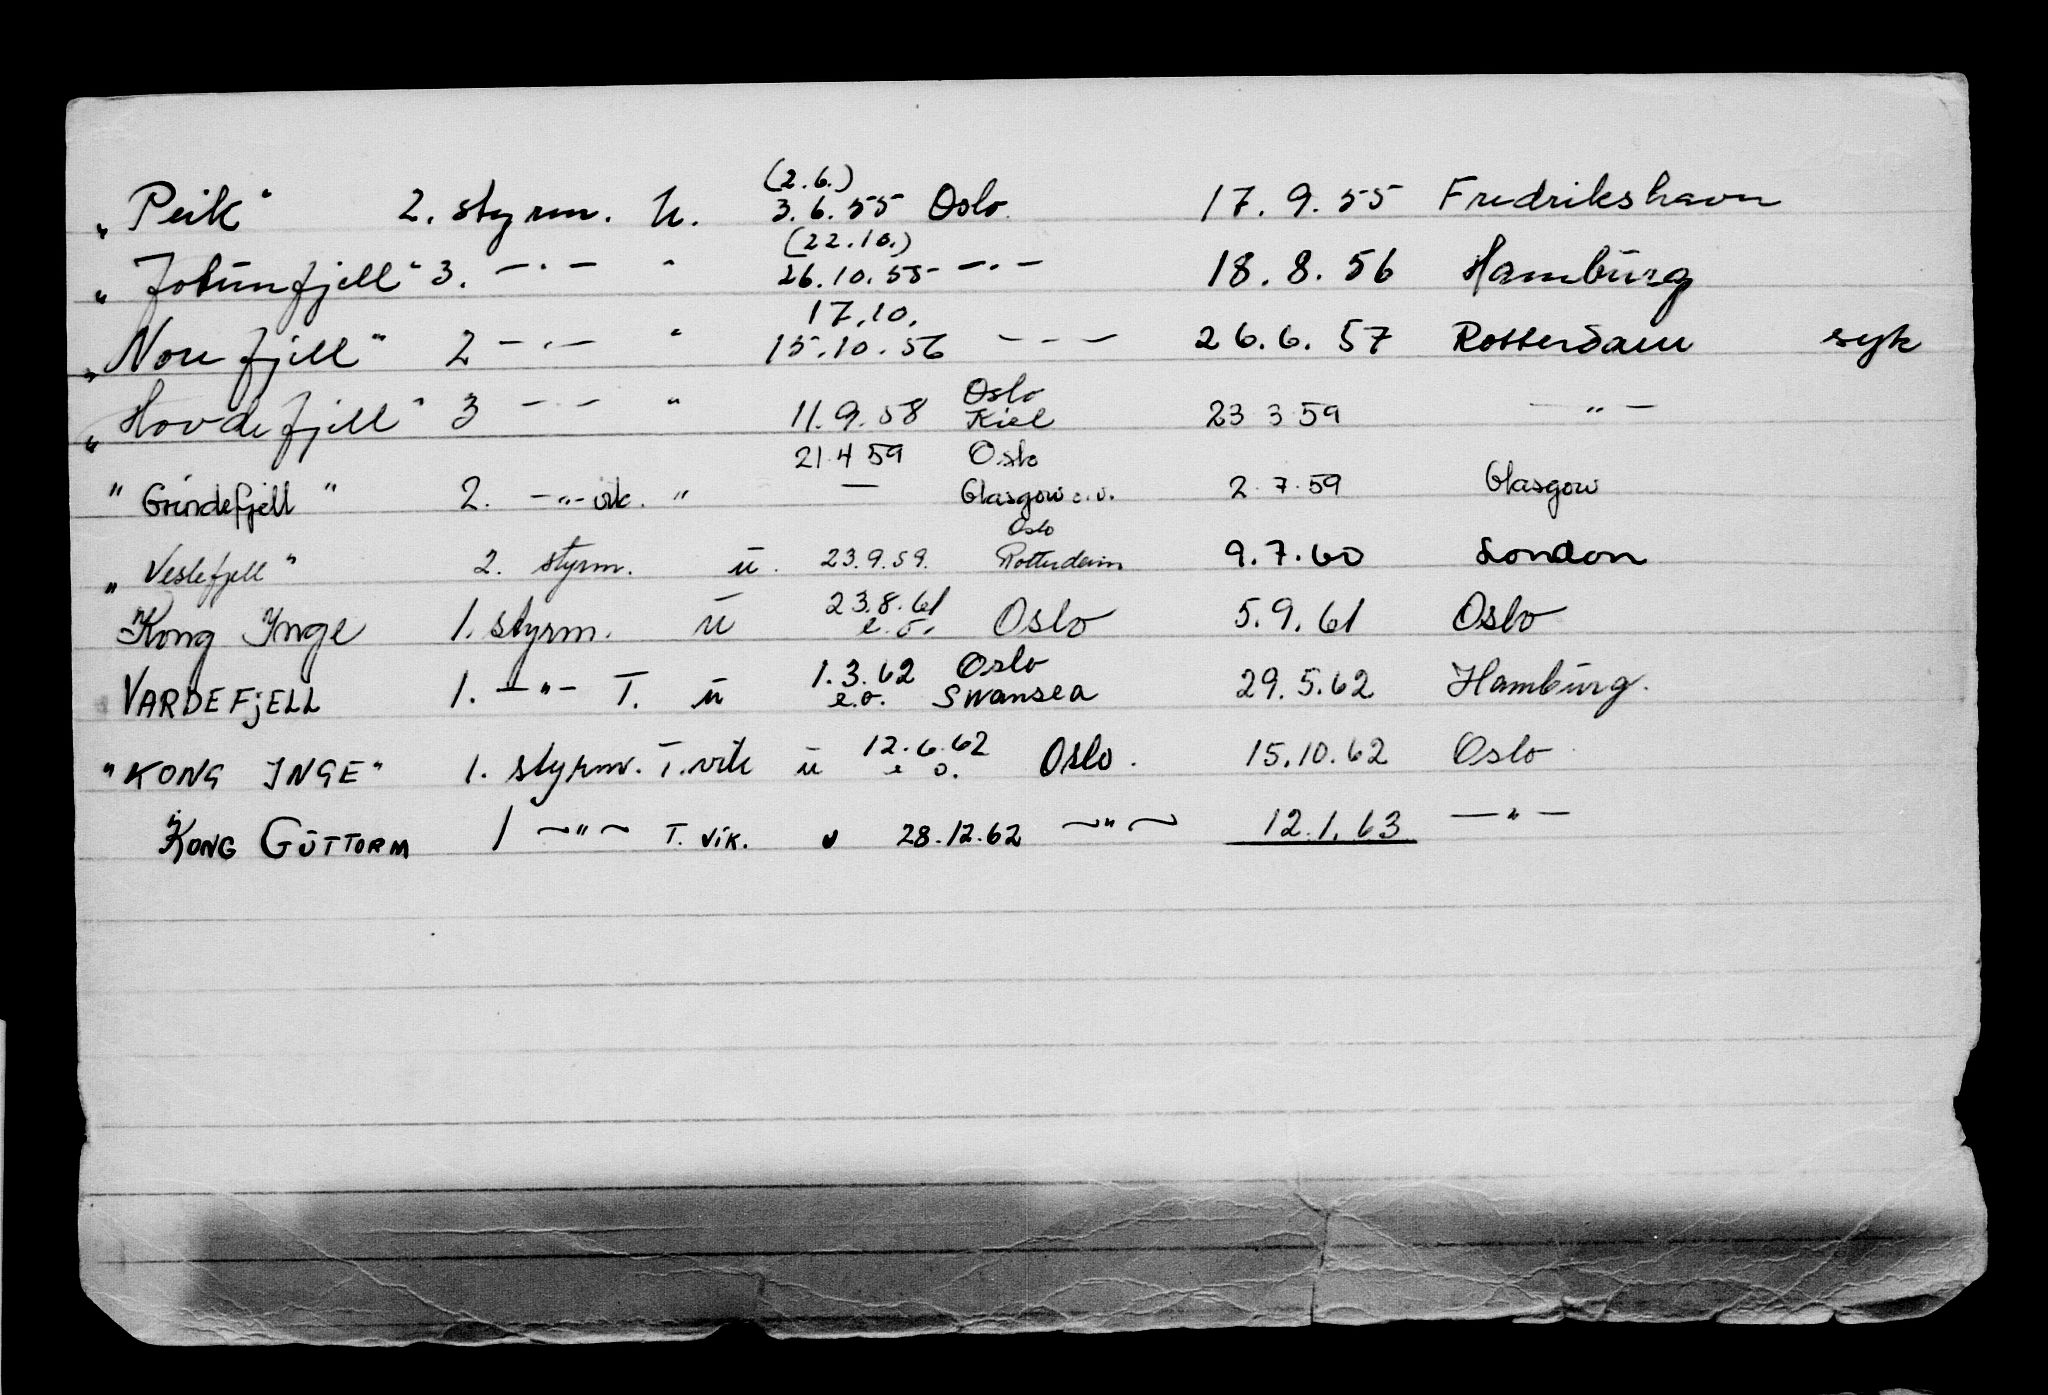 (2.6.)
„Peik" 2. styrm. u. 3.6.55 Oslo. 17.9.55 Fredrikshavn
(22.10.)
„Jotunfjell" 3. —·— " 26.10.55 —·— 18.8.56 Hamburg
17.10.
„Norefjell" 2 —·— " 15.10.56 — - — 26.6.57 Rotterdam syk
Oslo
„Hovdefjell" 3 —·— " 11.9.58 Kiel 23 3 59 —"—
21.4 59 Oslo
"Grindefjell" 2. —"— vik. " — Glasgow e.o. 2.7.59 Glasgow
Oslo
„Veslefjell" 2. styrm. u. 23.9.59. Rotterdam 9.7.60 London
23.8.61
"Kong Inge" 1. styrm. u e.o. Oslo 5.9.61 Oslo
1.3.62 Oslo
VARDEFJELL 1. —"— T. u e.o. Swansea 29.5.62 Hamburg.
12.6.62
"KONG INGE" 1. styrm. T.vik u e o. Oslo. 15.10.62 Oslo
"KONG GUTTORM 1 —"— T. VIK. u 28.12.62 —"— 12.1.63 —"—